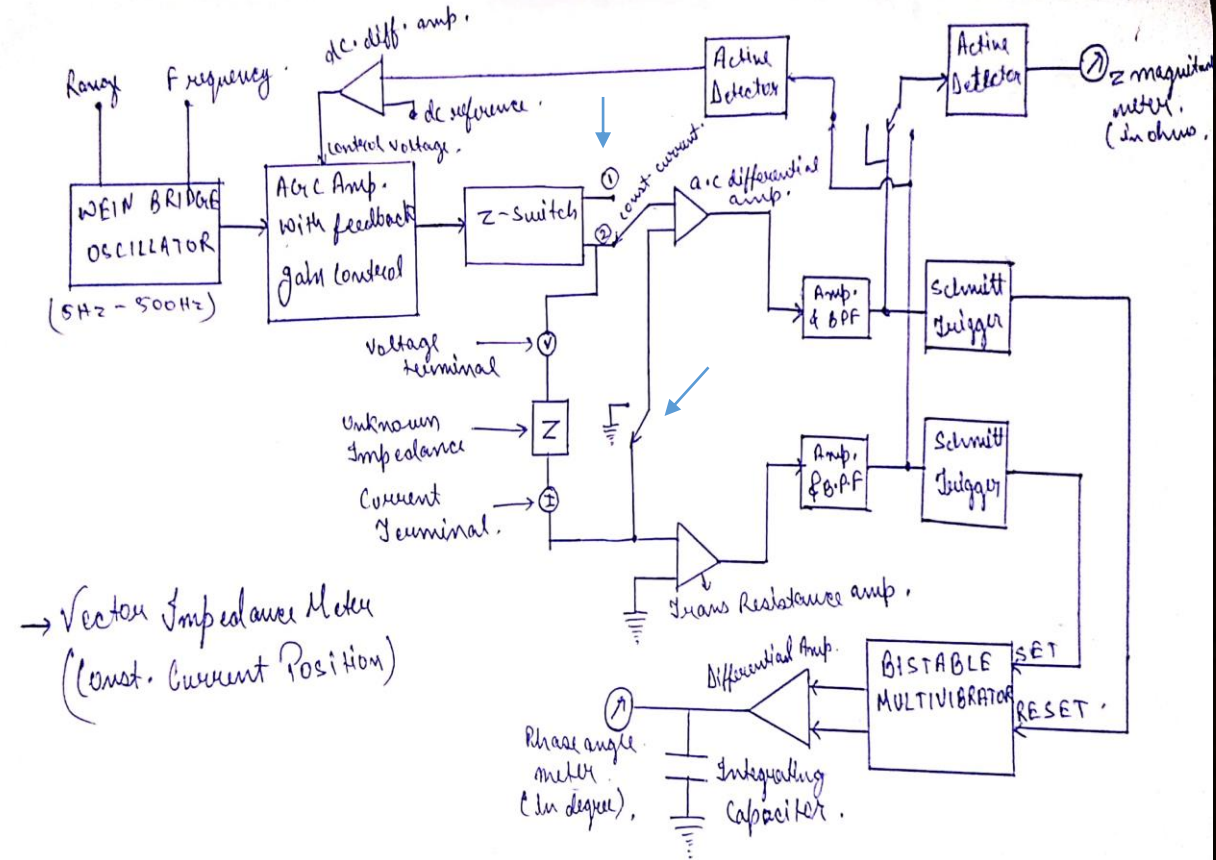 dc. diff. amp.
Range
Frequency.
Active
Detector
Active
Detector
Z magnitude
meter.
(In ohms.
dc reference.
control voltage.
WEIN BRIDGE
OSCILLATOR
(5Hz - 500Hz)
AGC Amp.
with feedback
gain control
Z-Switch
1
2
const. current.
a.c differential
amp.
Amp.
& BPF
Schmitt
Trigger
Voltage
terminal
V
Unknown
Impedance
Z
Current
Terminal.
I
Amp.
& B.P.F
Schmitt
Trigger
Trans Resistance amp.
→ Vector Impedance Meter
(Const. Current Position)
Differential Amp.
BISTABLE
MULTIVIBRATOR
SET
RESET.
Phase angle
meter.
(In degree).
Integrating
Capacitor.